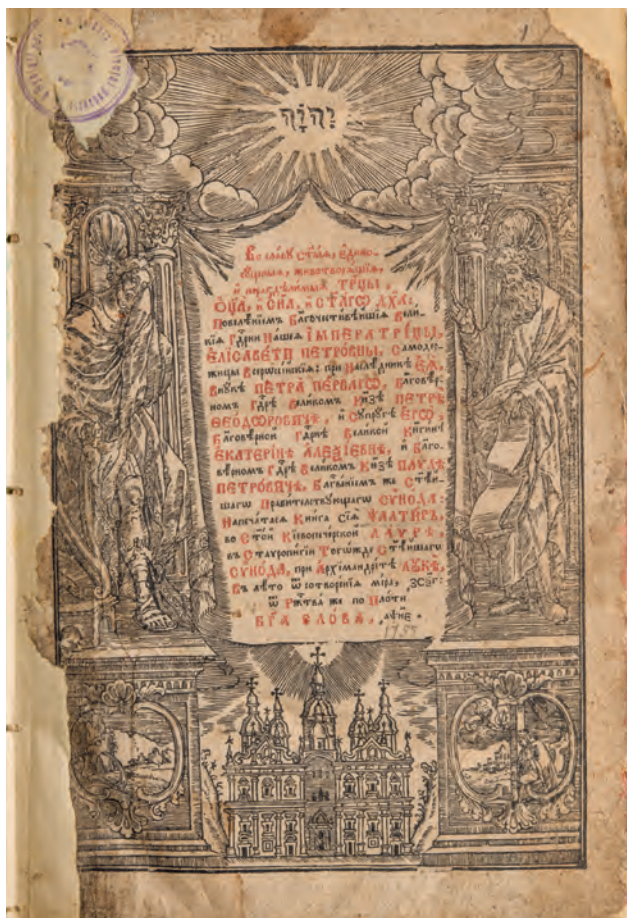 1
יהוה
Во славу ст҃ыѧ, єдино-
сꙋщныѧ, животворѧщїѧ,
и҆ нераздѣлимыѧ ТРЦ҃Ы,
ОЦ҃А, и҆ СН҃А, и҆ СТ҃АГѠ ДХ҃А:
Повелѣнїемъ Бл҃гочестивѣйшїѧ Вели-
кїѧ Гдр҃ни Нашеѧ ІМПЕРАТРІЦЫ,
ЕЛІСАВЕТЫ ПЕТРОВНЫ, Самодер-
жицы Всерѡссїйскїѧ: при Наслѣдникѣ ЕѦ,
Внꙋкѣ ПЕТРА ПЕРВАГѠ, Благовѣр-
номъ Гдр҃ѣ Великомъ Кн҃зѣ ПЕТРѢ
ѲЕОДѠРОВИЧѢ, и҆ Сꙋпрꙋгѣ ЕГѠ,
Благовѣрной Гдр҃нѣ Великой Кнѧгинѣ
ЕКАТЕРІНѢ АЛЕѮІЕВНѢ, и҆ Благо-
вѣрномъ Гдр҃ѣ Великомъ Кн҃зѣ ПАѴЛѢ
ПЕТРОВИЧѢ, Блгⷭ҇венїемъ же Ст҃ѣй-
шагѡ Правителствꙋющагѡ СѴНОДА:
Напечатасѧ Книга Сїѧ ѰАЛТИРЬ,
во Ст҃ой Кїевопечерской ЛАѴРѢ,
въ Стаѵропигїи Тогѡжде Ст҃ѣйшагѡ
СѴНОДА, при Архімандрітѣ ЛꙊКѢ,
Въ лѣто ѿ сотворенїѧ міра, ҂ЗСѮГ:
ѿ Ржⷭ҇тва же по Плоти
БГ҃А СЛОВА, ҂АѰНЕ.
1755